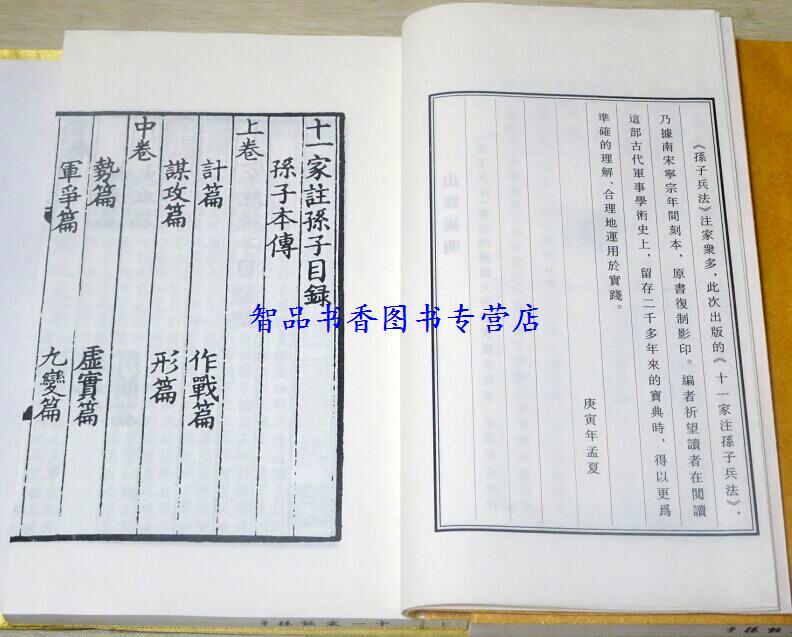 《孫子兵法》注家衆多，此次出版的《十一家注孫子兵法》，
乃據南宋寧宗年間刻本，原書復制影印。編者祈望讀者在閲讀
這部古代軍事學術史上，留存二千多年來的寶典時，得以更爲
準確的理解、合理地運用於實踐。
庚寅年孟夏
十一家註孫子目録
孫子本傳
上卷
計篇 作戰篇
謀攻篇 形篇
中卷
勢篇 虛實篇
軍爭篇 九變篇
智品书香图书专营店